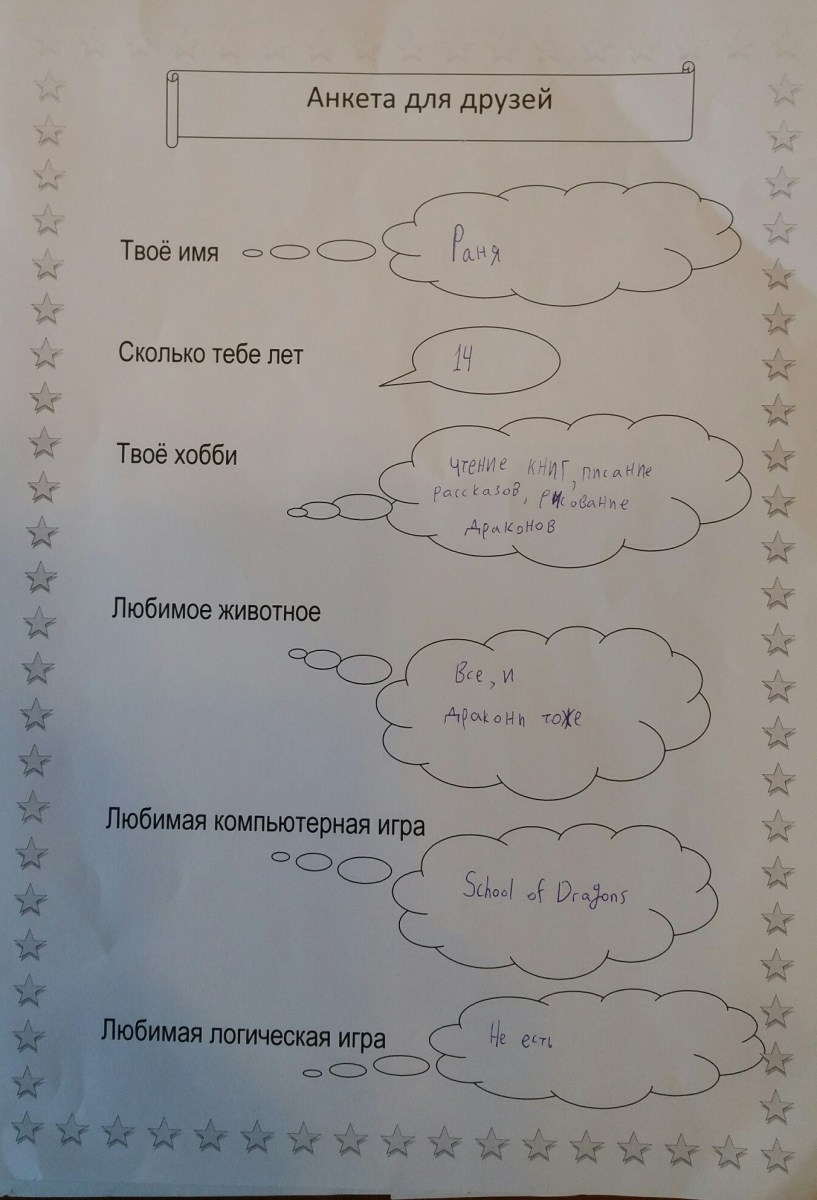 Анкета для друзей
Твоё имя
Раня
Сколько тебе лет
14
Твоё хобби
чтение книг, писание
рассказов, рисование
драконов
Любимое животное
Все, и
дракони тоже
Любимая компьютерная игра
School of Dragons
Любимая логическая игра
Не есть